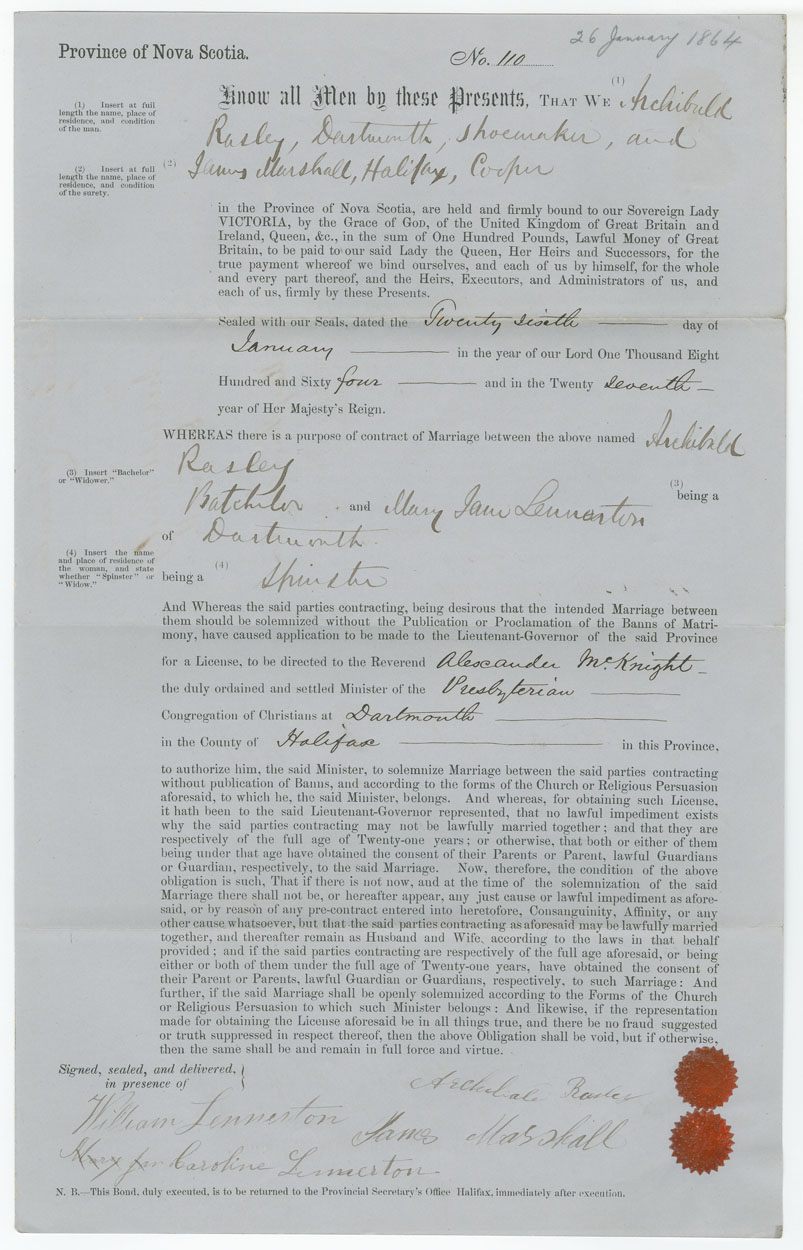 26 January 1864
Province of Nova Scotia.
No. 110
(1)
Know all Men by these Presents, THAT WE Archibald
(1) Insert at full
length the name, place of
residence, and condition
of the man.
Rasley, Dartmouth, Shoemaker, and
(2) Insert at full
length the name, place of
residence, and condition
of the surety.
(2) James Marshall, Halifax, Cooper
in the Province of Nova Scotia, are held and firmly bound to our Sovereign Lady
VICTORIA, by the Grace of GOD, of the United Kingdom of Great Britain and
Ireland, Queen, &c., in the sum of One Hundred Pounds, Lawful Money of Great
Britain, to be paid to our said Lady the Queen, Her Heirs and Successors, for the
true payment whereof we bind ourselves, and each of us by himself, for the whole
and every part thereof, and the Heirs, Executors, and Administrators of us, and
each of us, firmly by these Presents.
Sealed with our Seals, dated the Twenty sixth day of
January in the year of our Lord One Thousand Eight
Hundred and Sixty four and in the Twenty seventh
year of Her Majesty's Reign.
WHEREAS there is a purpose of contract of Marriage between the above named Archibald
Rasley
(3) Insert "Bachelor"
or "Widower."
(3)
being a
Batchelor and Mary Jane Lennerton
of Dartmouth
(4) Insert the name
and place of residence of
the woman, and state
whether "Spinster" or
"Widow."
(4)
being a Spinster
And Whereas the said parties contracting, being desirous that the intended Marriage between
them should be solemnized without the Publication or Proclamation of the Banns of Matri-
mony, have caused application to be made to the Lieutenant-Governor of the said Province
for a License, to be directed to the Reverend Alexander McKnight
the duly ordained and settled Minister of the Presbyterian
Congregation of Christians at Dartmouth
in the County of Halifax in this Province,
to authorize him, the said Minister, to solemnize Marriage between the said parties contracting
without publication of Banns, and according to the forms of the Church or Religious Persuasion
aforesaid, to which he, the said Minister, belongs. And whereas, for obtaining such License,
it hath been to the said Lieutenant-Governor represented, that no lawful impediment exists
why the said parties contracting may not be lawfully married together; and that they are
respectively of the full age of Twenty-one years; or otherwise, that both or either of them
being under that age have obtained the consent of their Parents or Parent, lawful Guardians
or Guardian, respectively, to the said Marriage. Now, therefore, the condition of the above
obligation is such, That if there is not now, and at the time of the solemnization of the said
Marriage there shall not be, or hereafter appear, any just cause or lawful impediment as afore-
said, or by reason of any pre-contract entered into heretofore, Consanguinity, Affinity, or any
other cause whatsoever, but that the said parties contracting as aforesaid may be lawfully married
together, and thereafter remain as Husband and Wife, according to the laws in that behalf
provided; and if the said parties contracting are respectively of the full age aforesaid, or being
either or both of them under the full age of Twenty-one years, have obtained the consent of
their Parent or Parents, lawful Guardian or Guardians, respectively, to such Marriage: And
further, if the said Marriage shall be openly solemnized according to the Forms of the Church
or Religious Persuasion to which such Minister belongs: And likewise, if the representation
made for obtaining the License aforesaid be in all things true, and there be no fraud suggested
or truth suppressed in respect thereof, then the above Obligation shall be void, but if otherwise,
then the same shall be and remain in full force and virtue.
Signed, sealed, and delivered,
in presence of
Archibald Rasley
William Lennerton
James Marshall
Mary Jan Caroline Lennerton
N. B.—This Bond, duly executed, is to be returned to the Provincial Secretary's Office Halifax, immediately after execution.